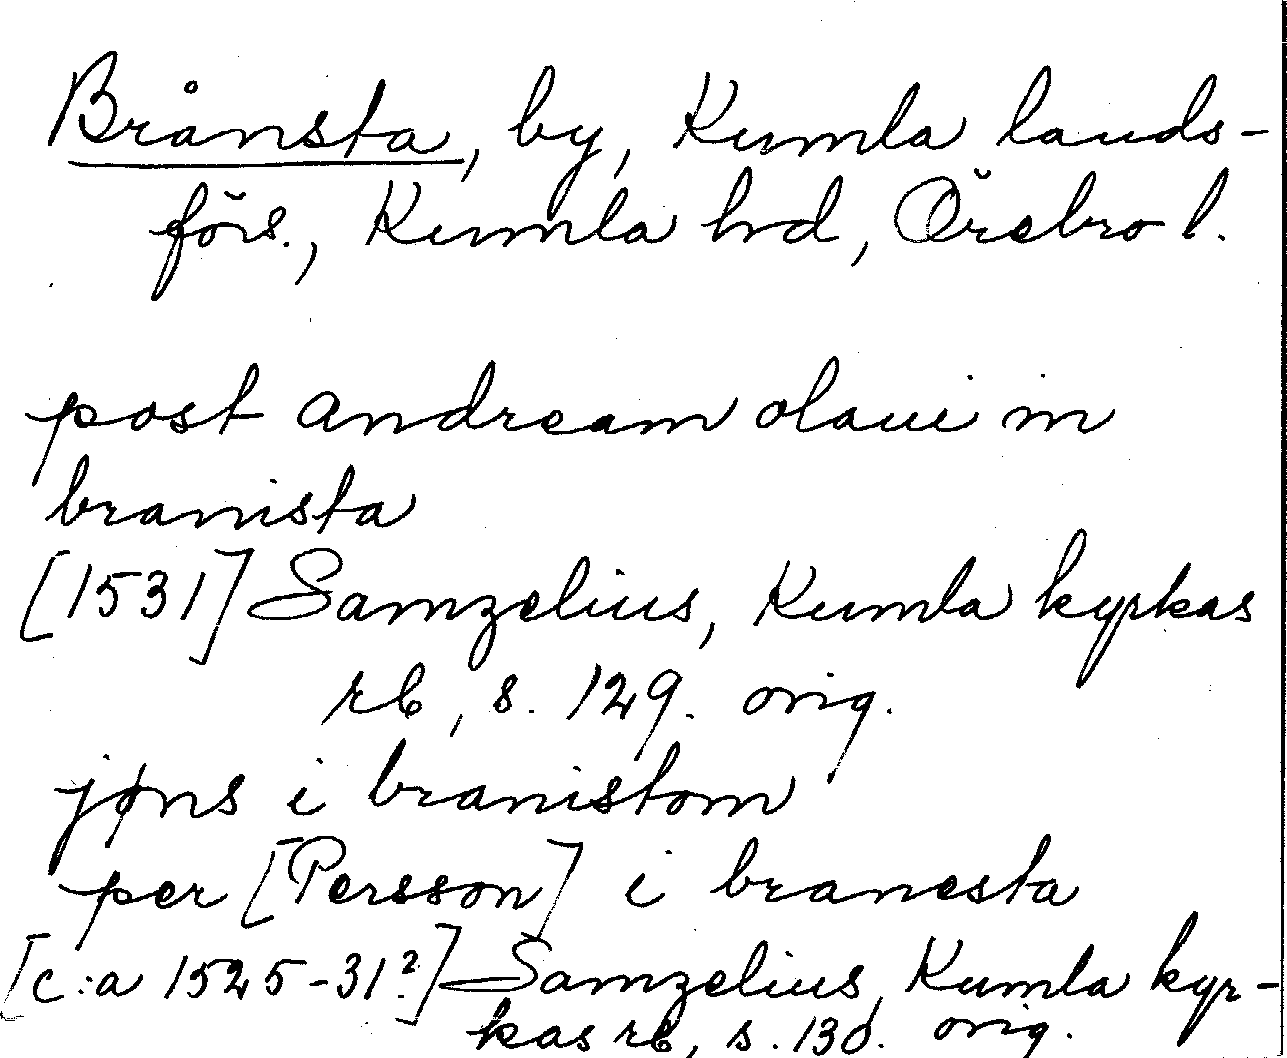 Brånsta, by, Kumla lands-
förs., Kumla hd, Örebro l.
post andream olaui in
branista
[1531] Samzelius, Kumla kyrkas
rb, s. 129. orig.
jøns i branistom
per [Persson] i branesta
[c:a 1525-31?] Samzelius, Kumla kyr-
kas rb, s. 130. orig.